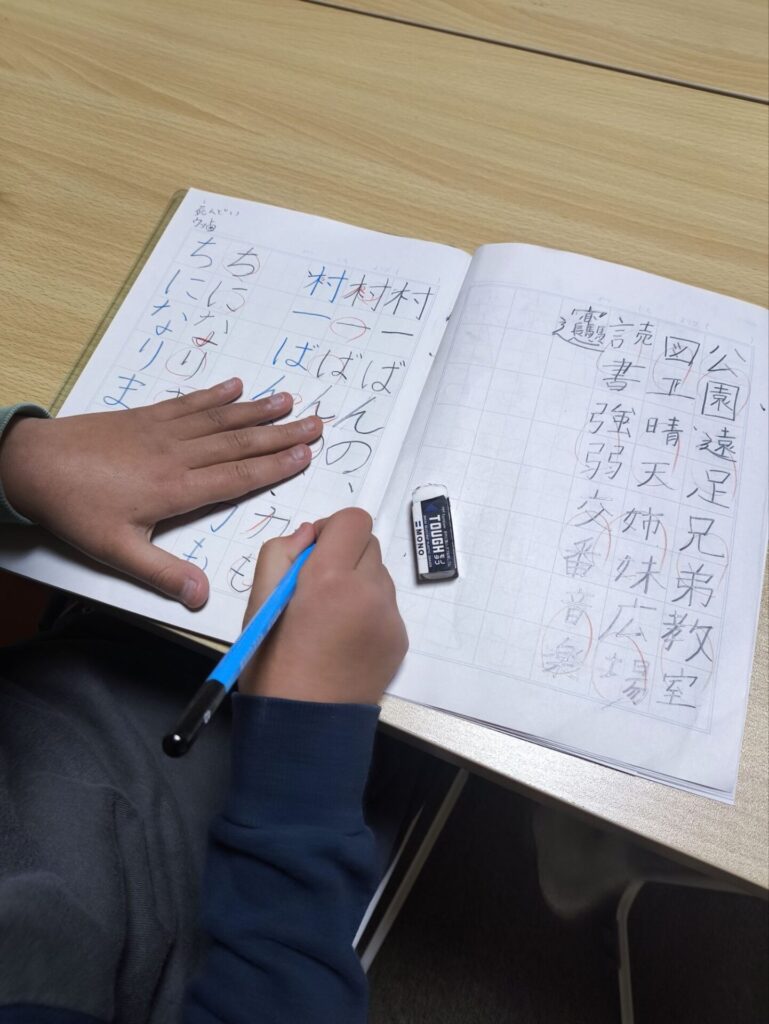 公園遠足兄弟教室
図工晴天姉妹広場
読書強弱交番音楽
村一ばんの、
村一ばんの
村一ばん
ちになり
ちになりま
も
も
TOUGH
MONO